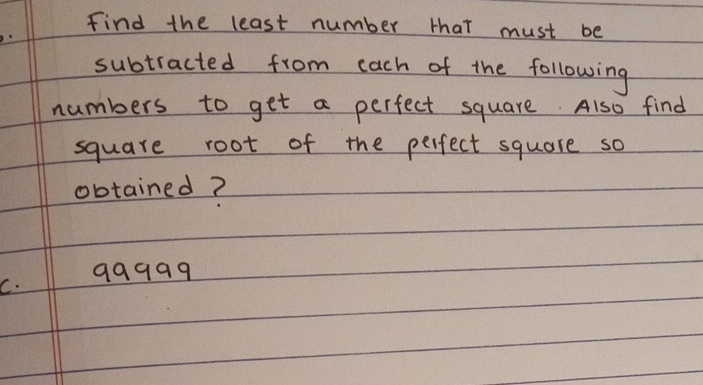 . Find the least number that must be
subtracted from each of the following
numbers to get a perfect square. Also find
square root of the perfect square so
obtained?
c. 99999